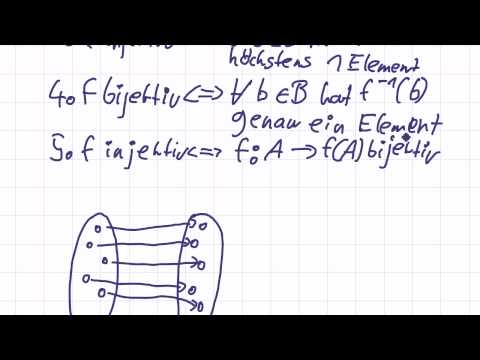 höchstens 1 Element
4. f bijektiv <=> ∀ b ∈ B hat f⁻¹(b)
genau ein Element
5. f injektiv <=> f: A → f(A) bijektiv